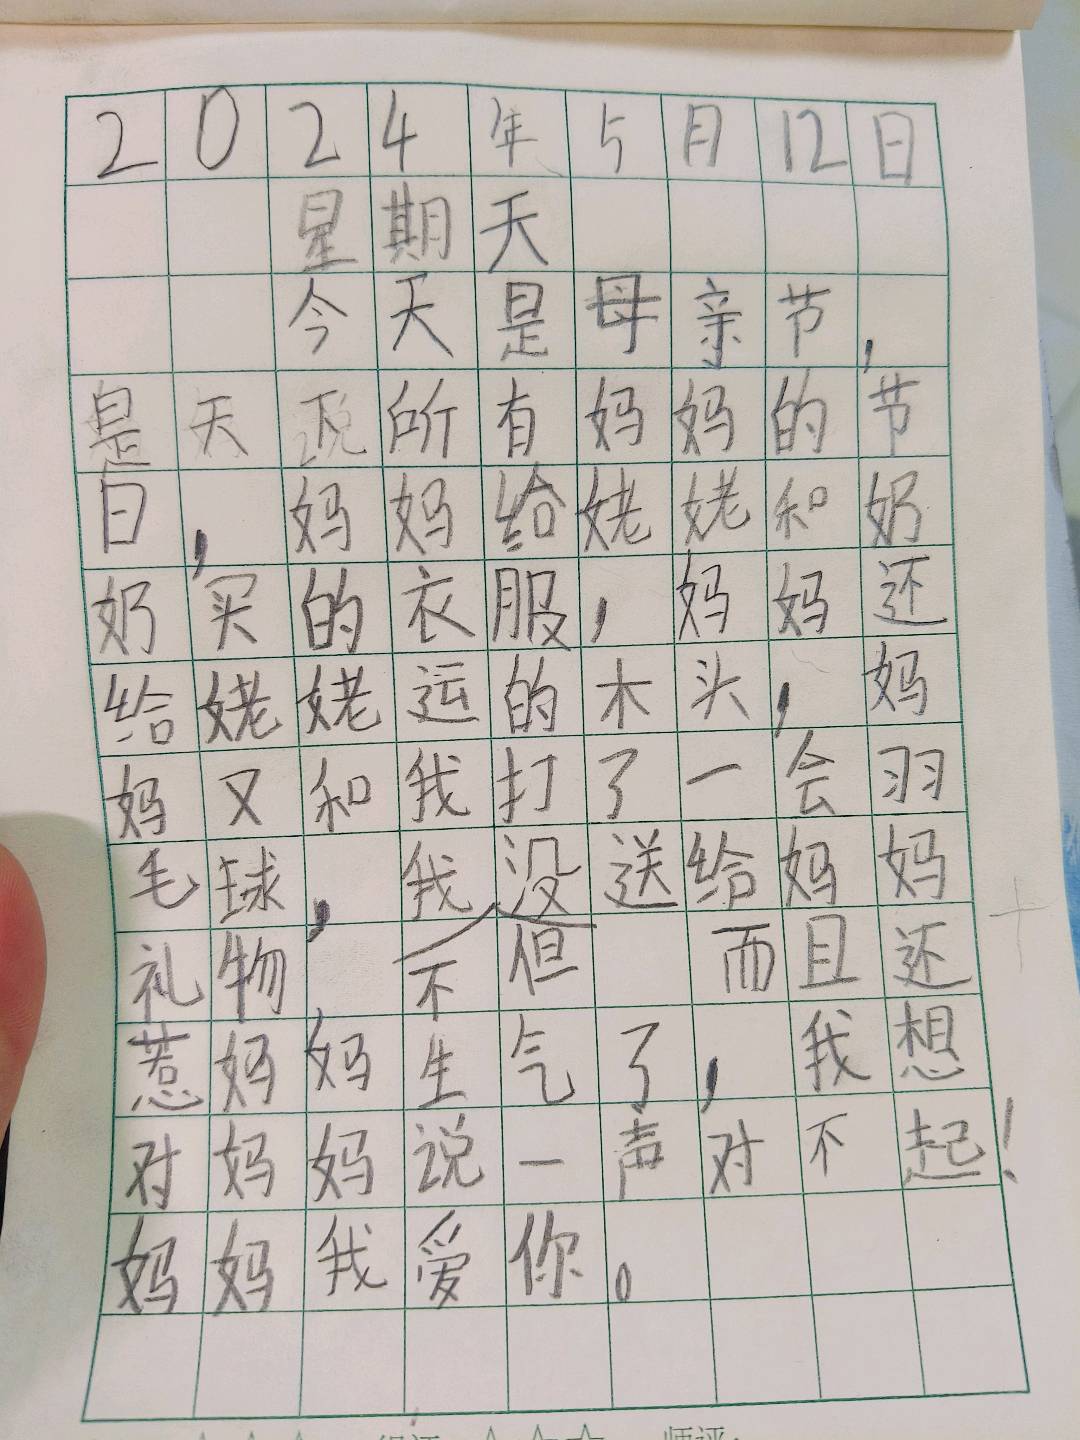 2024年5月12日
星期天
今天是母亲节,
是天下所有妈妈的节
日,妈妈给姥姥和奶
奶买的衣服,妈妈还
给姥姥运的木头,妈
妈又和我打了一会羽
毛球,我没送给妈妈
礼物,不但 而且还
惹妈妈生气了,我想
对妈妈说一声对不起!
妈妈我爱你。
师评: